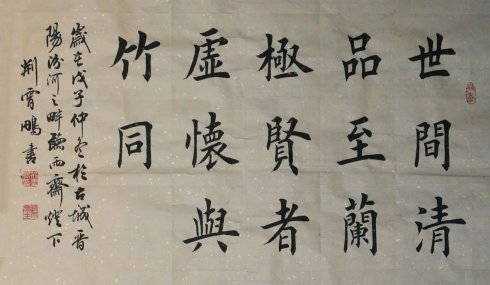 世間清
品至蘭
極賢者
虛懷與
竹同
歲在戊子仲冬於古城晋
陽汾河之畔聽雨齋燈下
荆霄鵬書